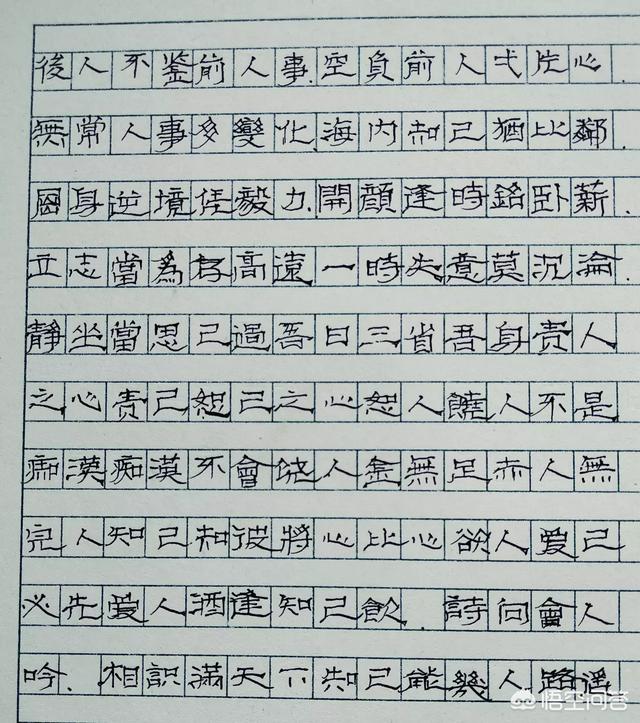 後人不鉴前人事.空負前人弌片心.
無常人事多變化.海内知己猶比鄰.
身逆境凭毅力.開顔逢時銘卧薪.
立志當為存高遠一時失意莫沉淪.
静坐當思己過吾日三省吾身责人
之心责己恕己之心恕人饒人不是
痴漢痴漢不會饶人金無足赤人無
完人知己知彼將心比心欲人爱己
必先爱人酒逢知己飲.詩向會人
吟.相識滿天下知己能幾人路遥
悟空问答